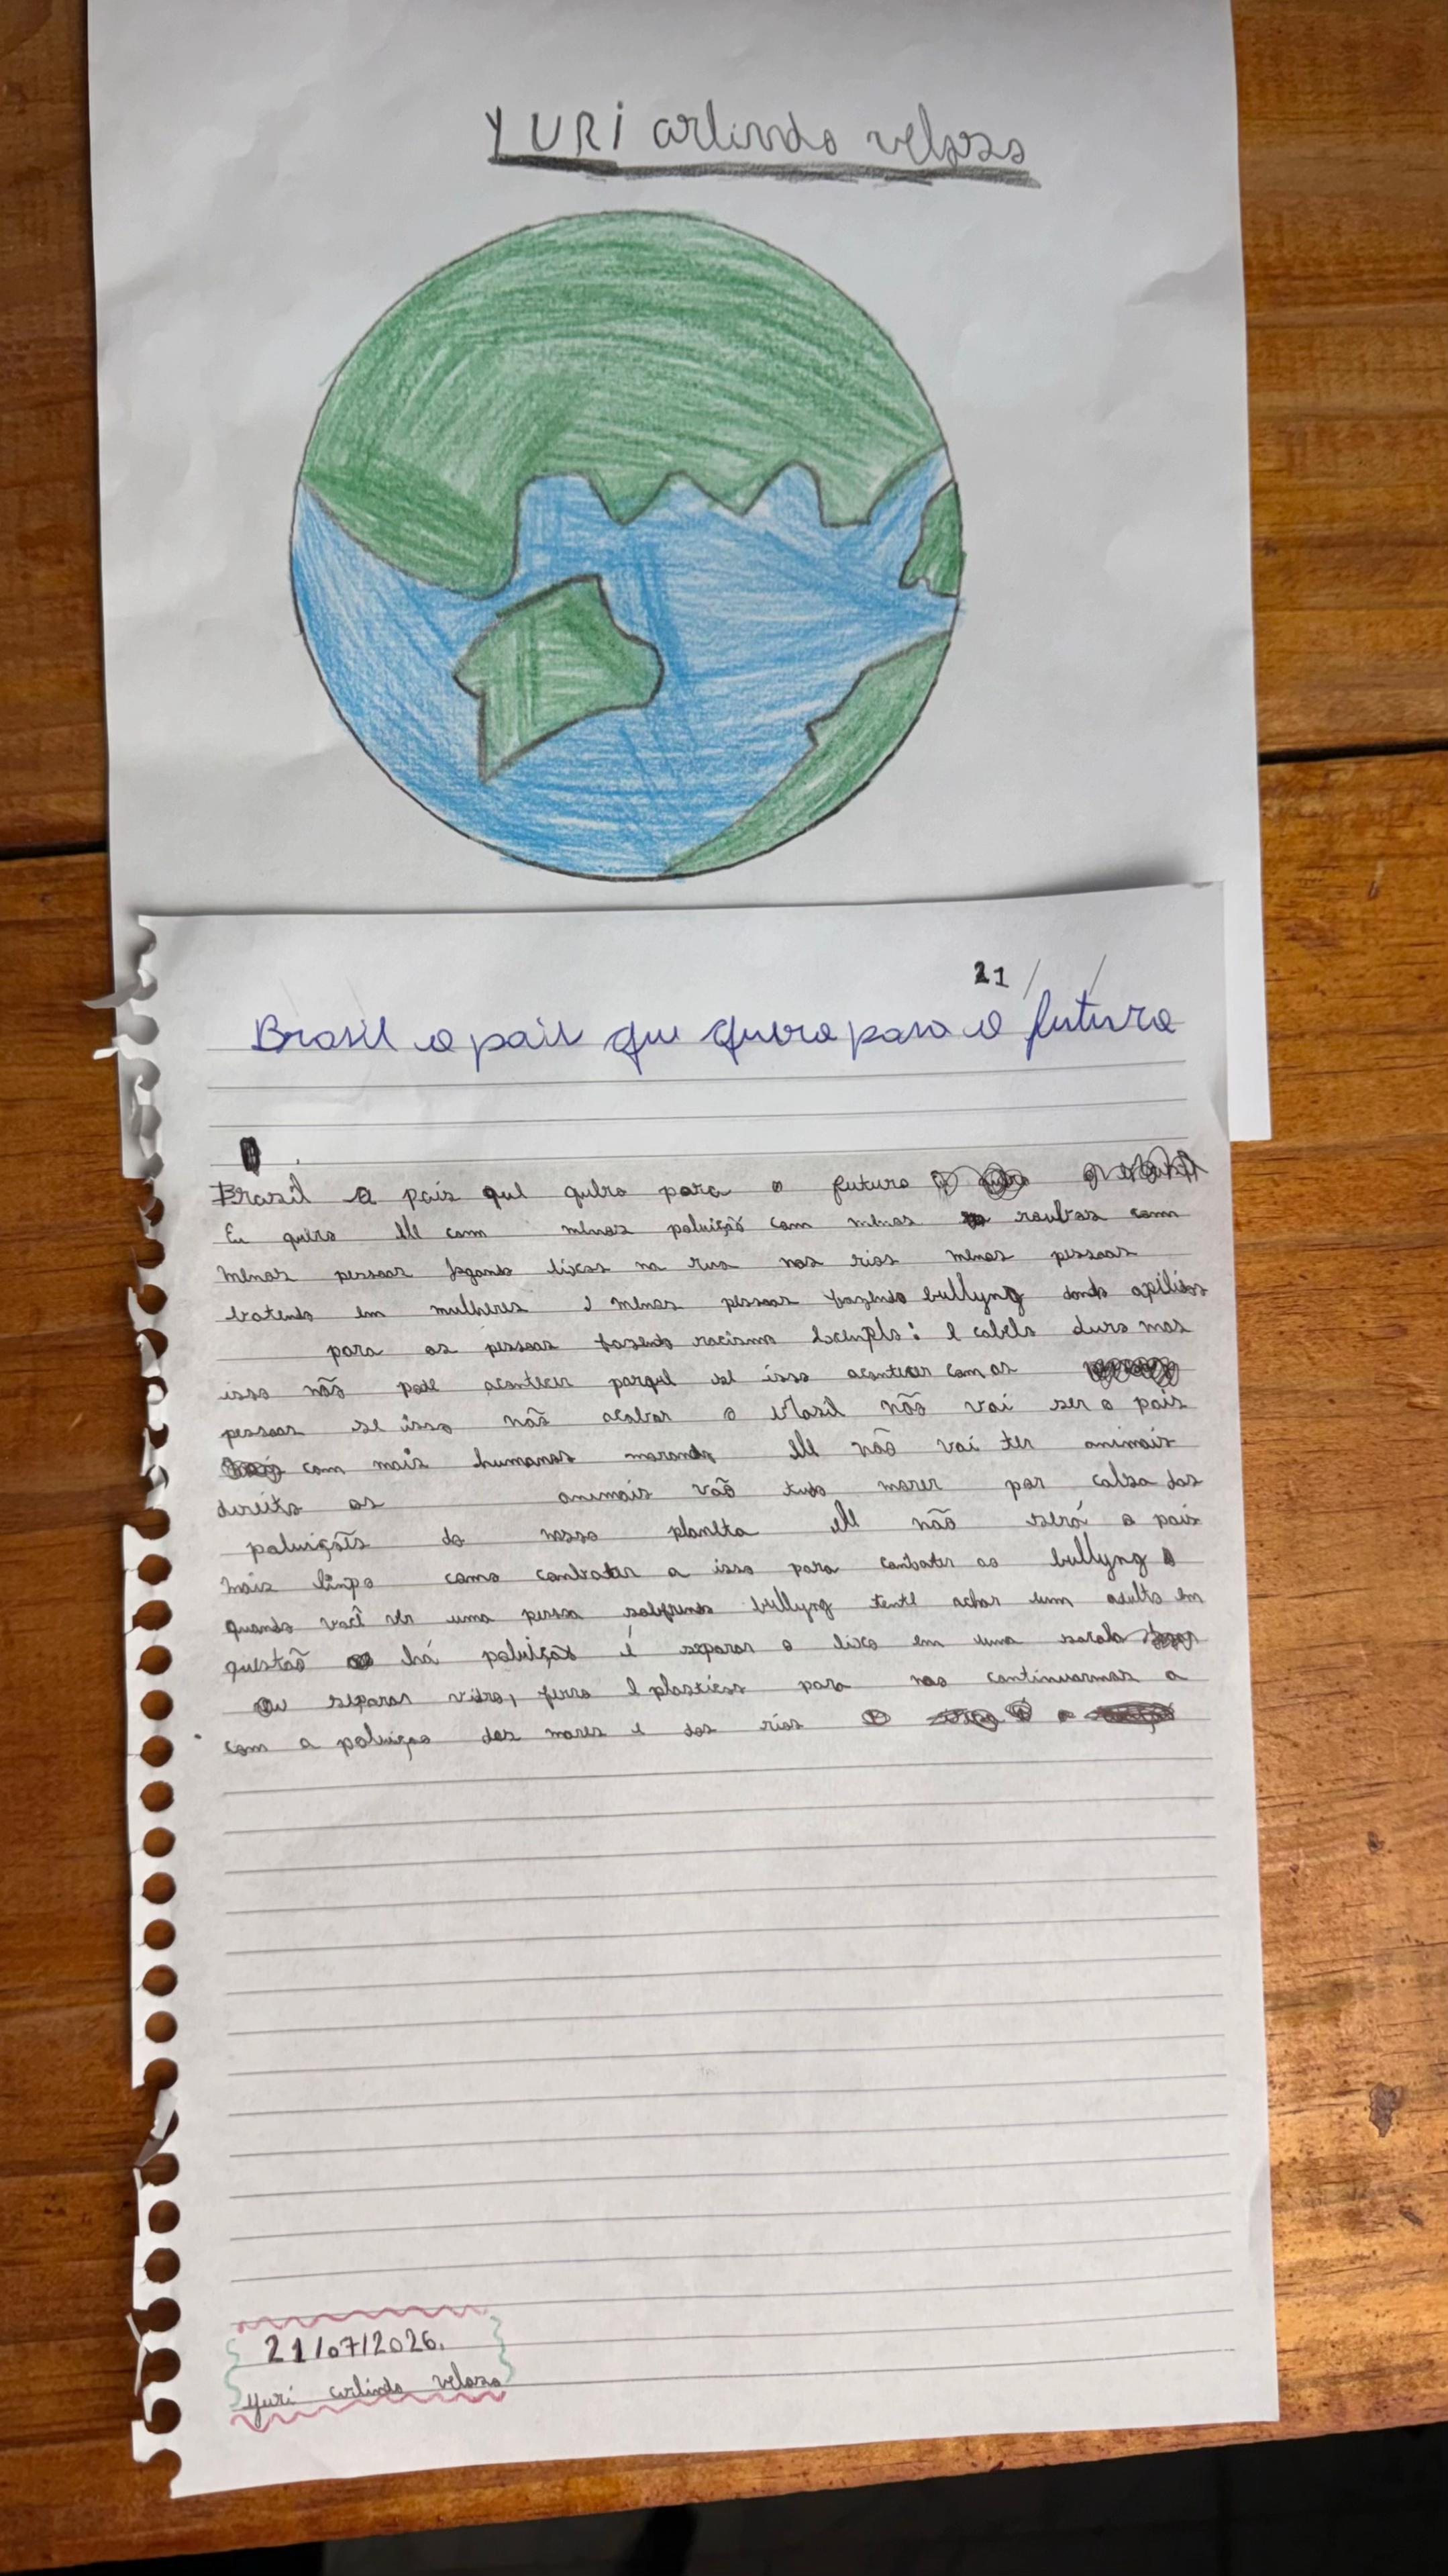 YURi arlindo veloso
21 / /
Brasil o pais que quero para o futuro
Brasil o pais que quero para o futuro
Eu quero ele com menos poluição com menos roubos com
menos pessoas jogando lixos na rua nos rios menos pessoas
batendo em mulheres e menos pessoas fazendo bullyng dondo apilidos
para as pessoas fazendo racismo Exemplo: e cabelo duro mas
isso não pode acontecer porque se isso acontecer com as
pessoas se isso não acabar o brasil não vai ser o pais
com mais humanos morando ele não vai ter animais
direito os animais vão tudo morer por calsa das
poluições do nosso planeta ele não será o pais
mais limpo como combater a isso para combater ao bullyng
quando você ver uma pessoa sofrendo bullyng tente achar um adulto em
questão há poluição é separar o lixo em uma sacola
Ou separar vidro, ferro e plasticos para nao continuarmos a
com a poluiçao dos mares e dos rios
21/07/2026.
yuri arlindo veloso